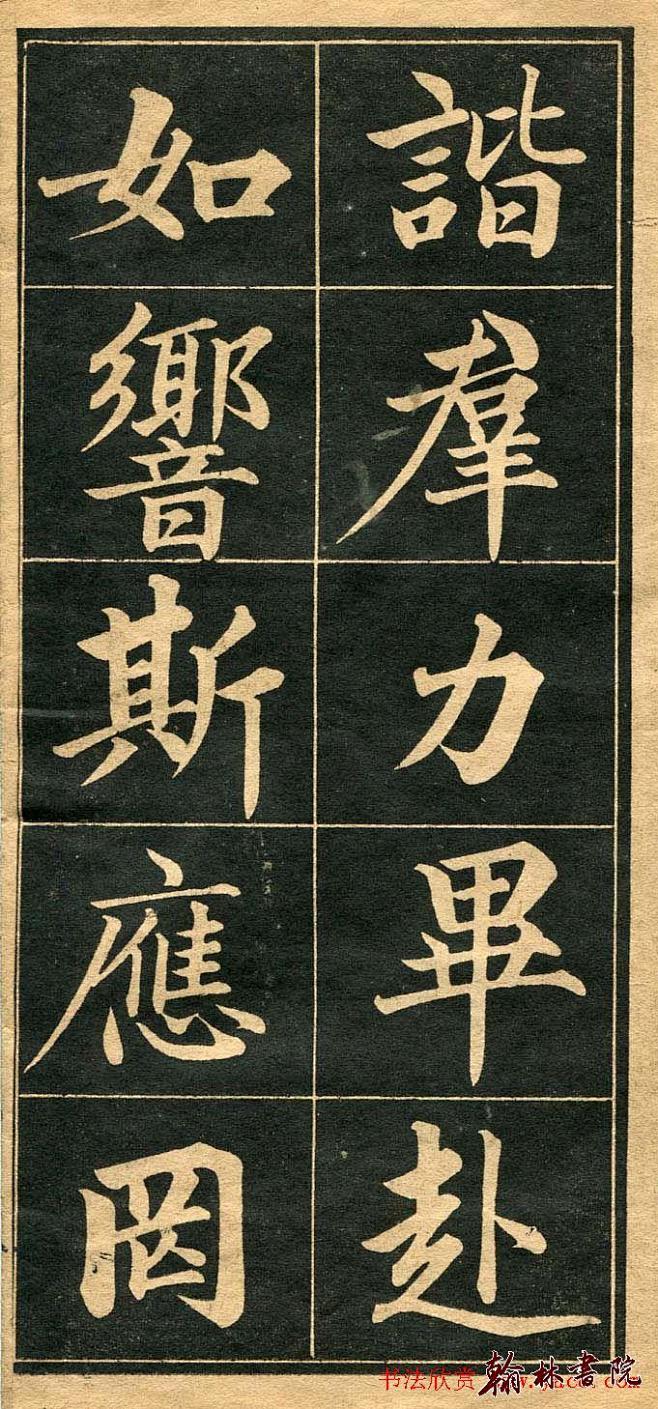 諧羣力畢赴
如響斯應罔
书法欣赏
翰林書院